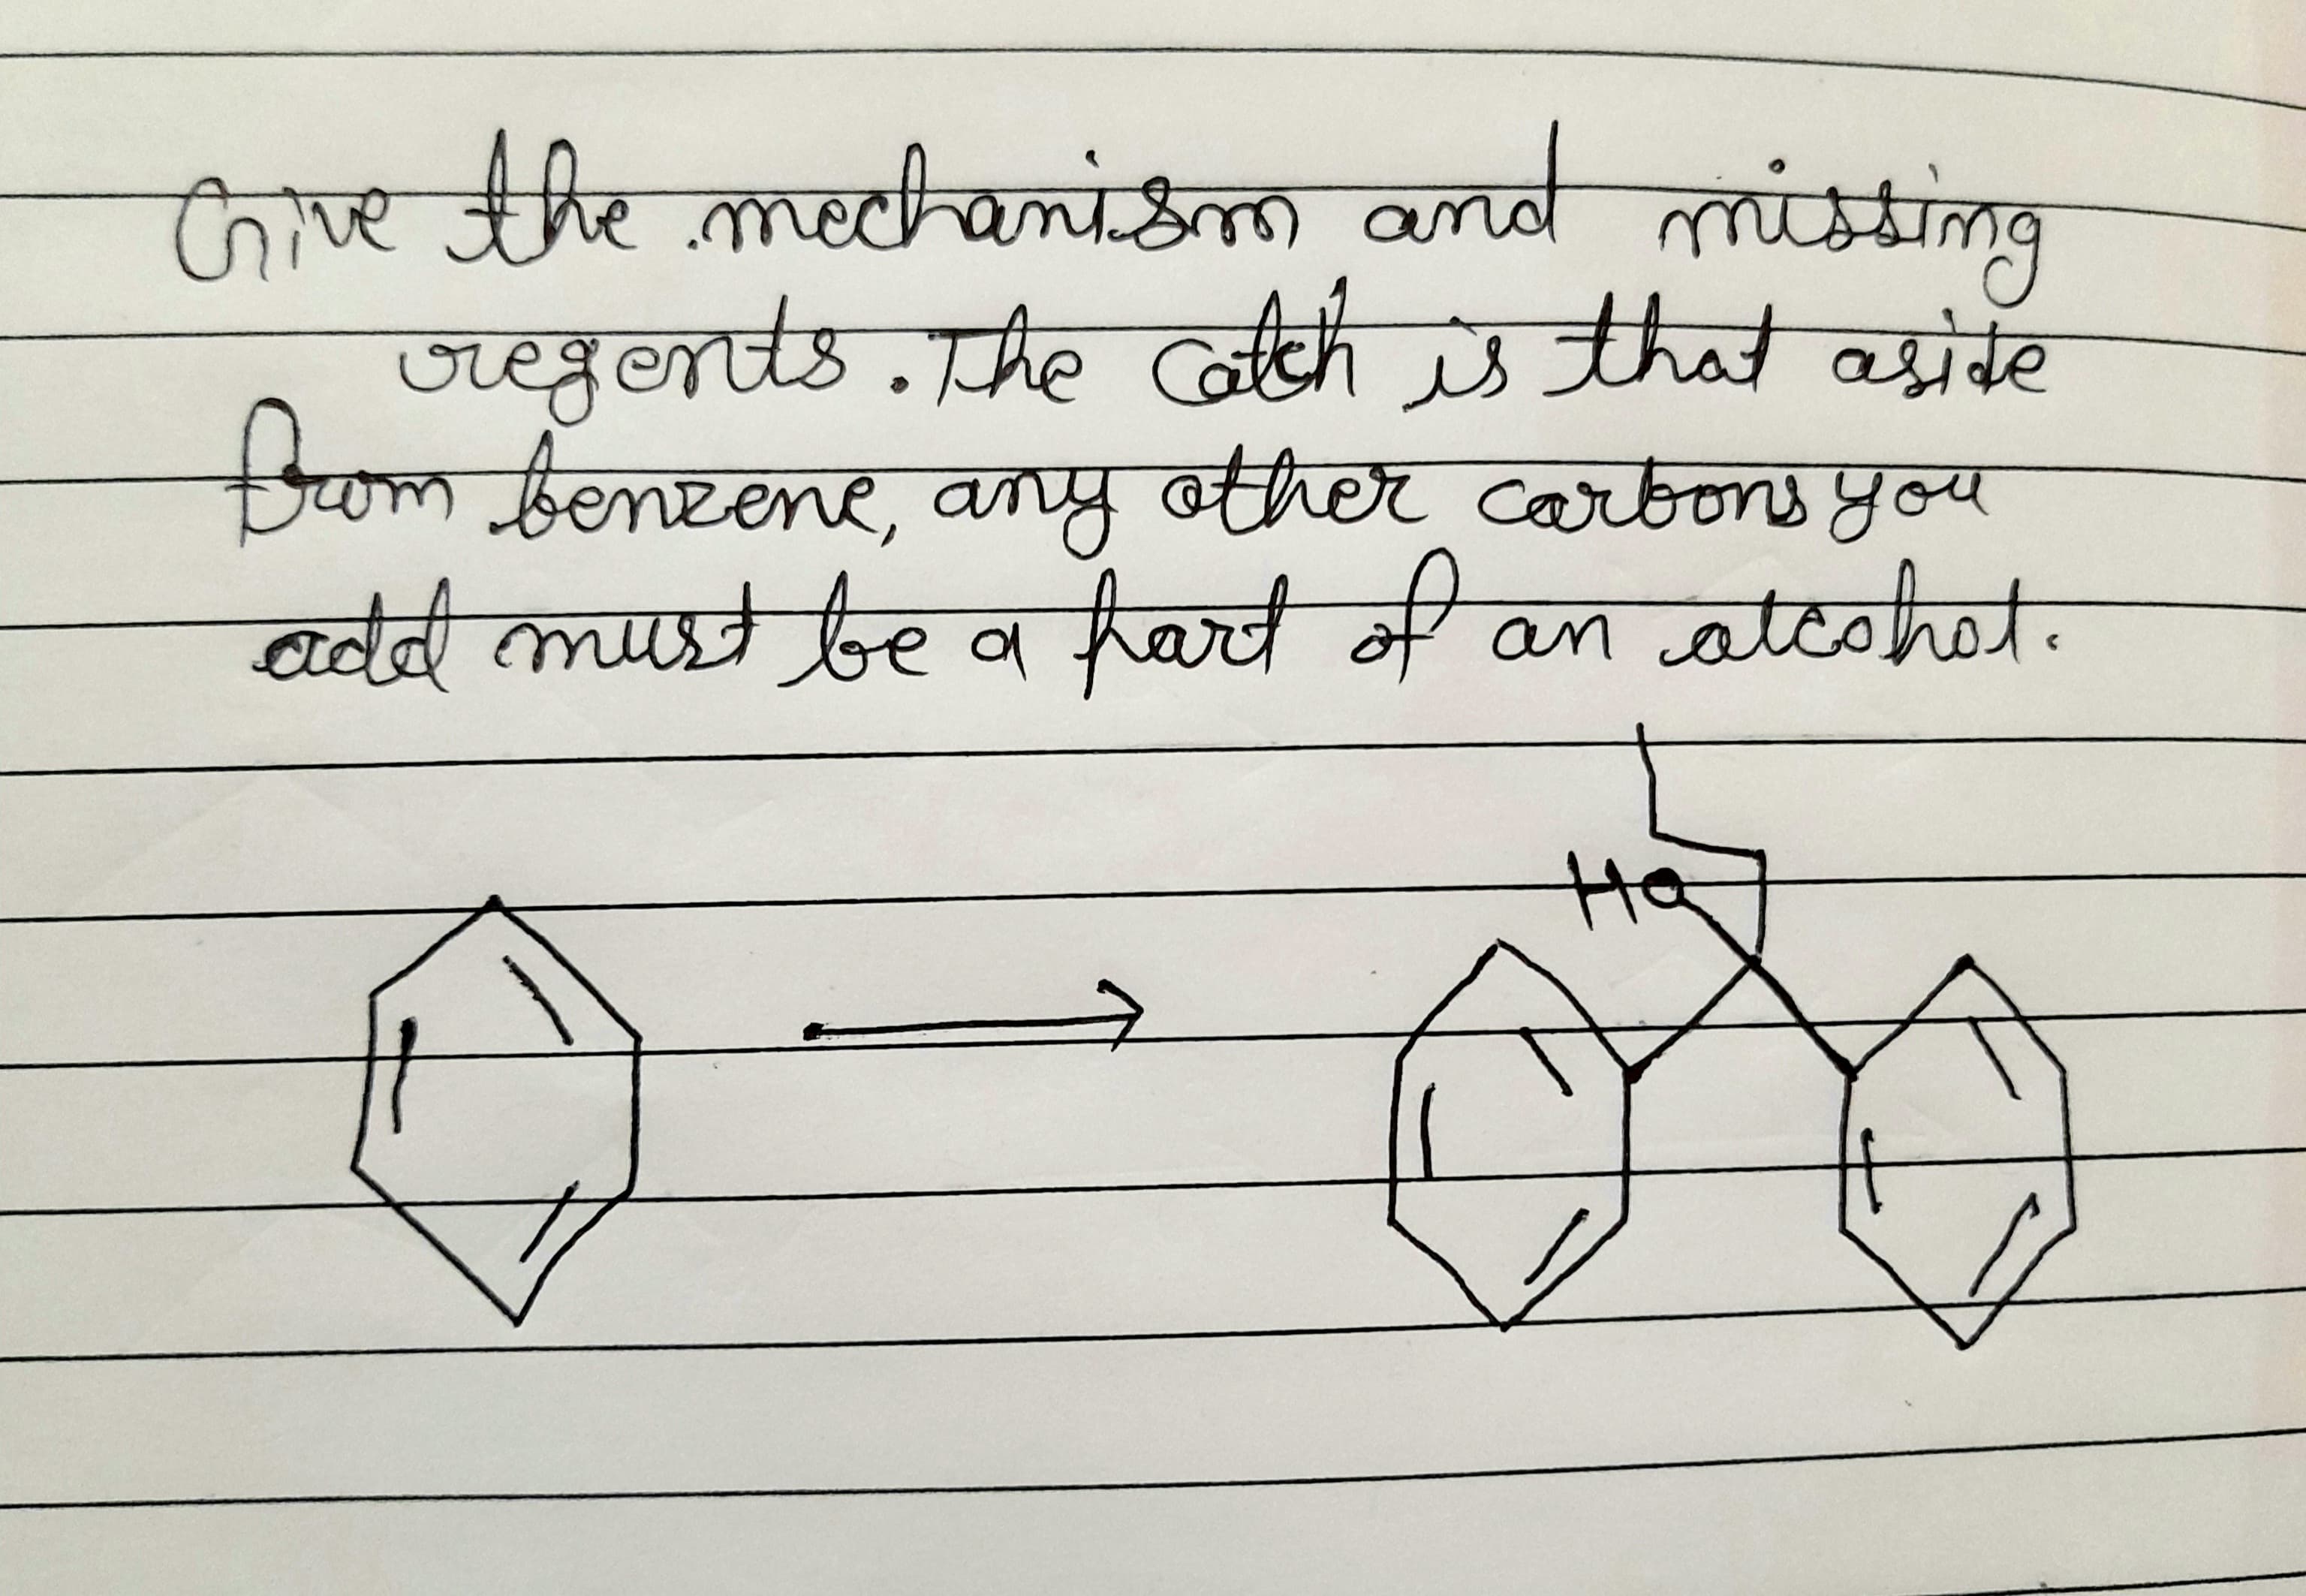 Give the mechanism and missing
regents. The catch is that aside
from benzene, any other carbons you
add must be a part of an alcohol.
HO